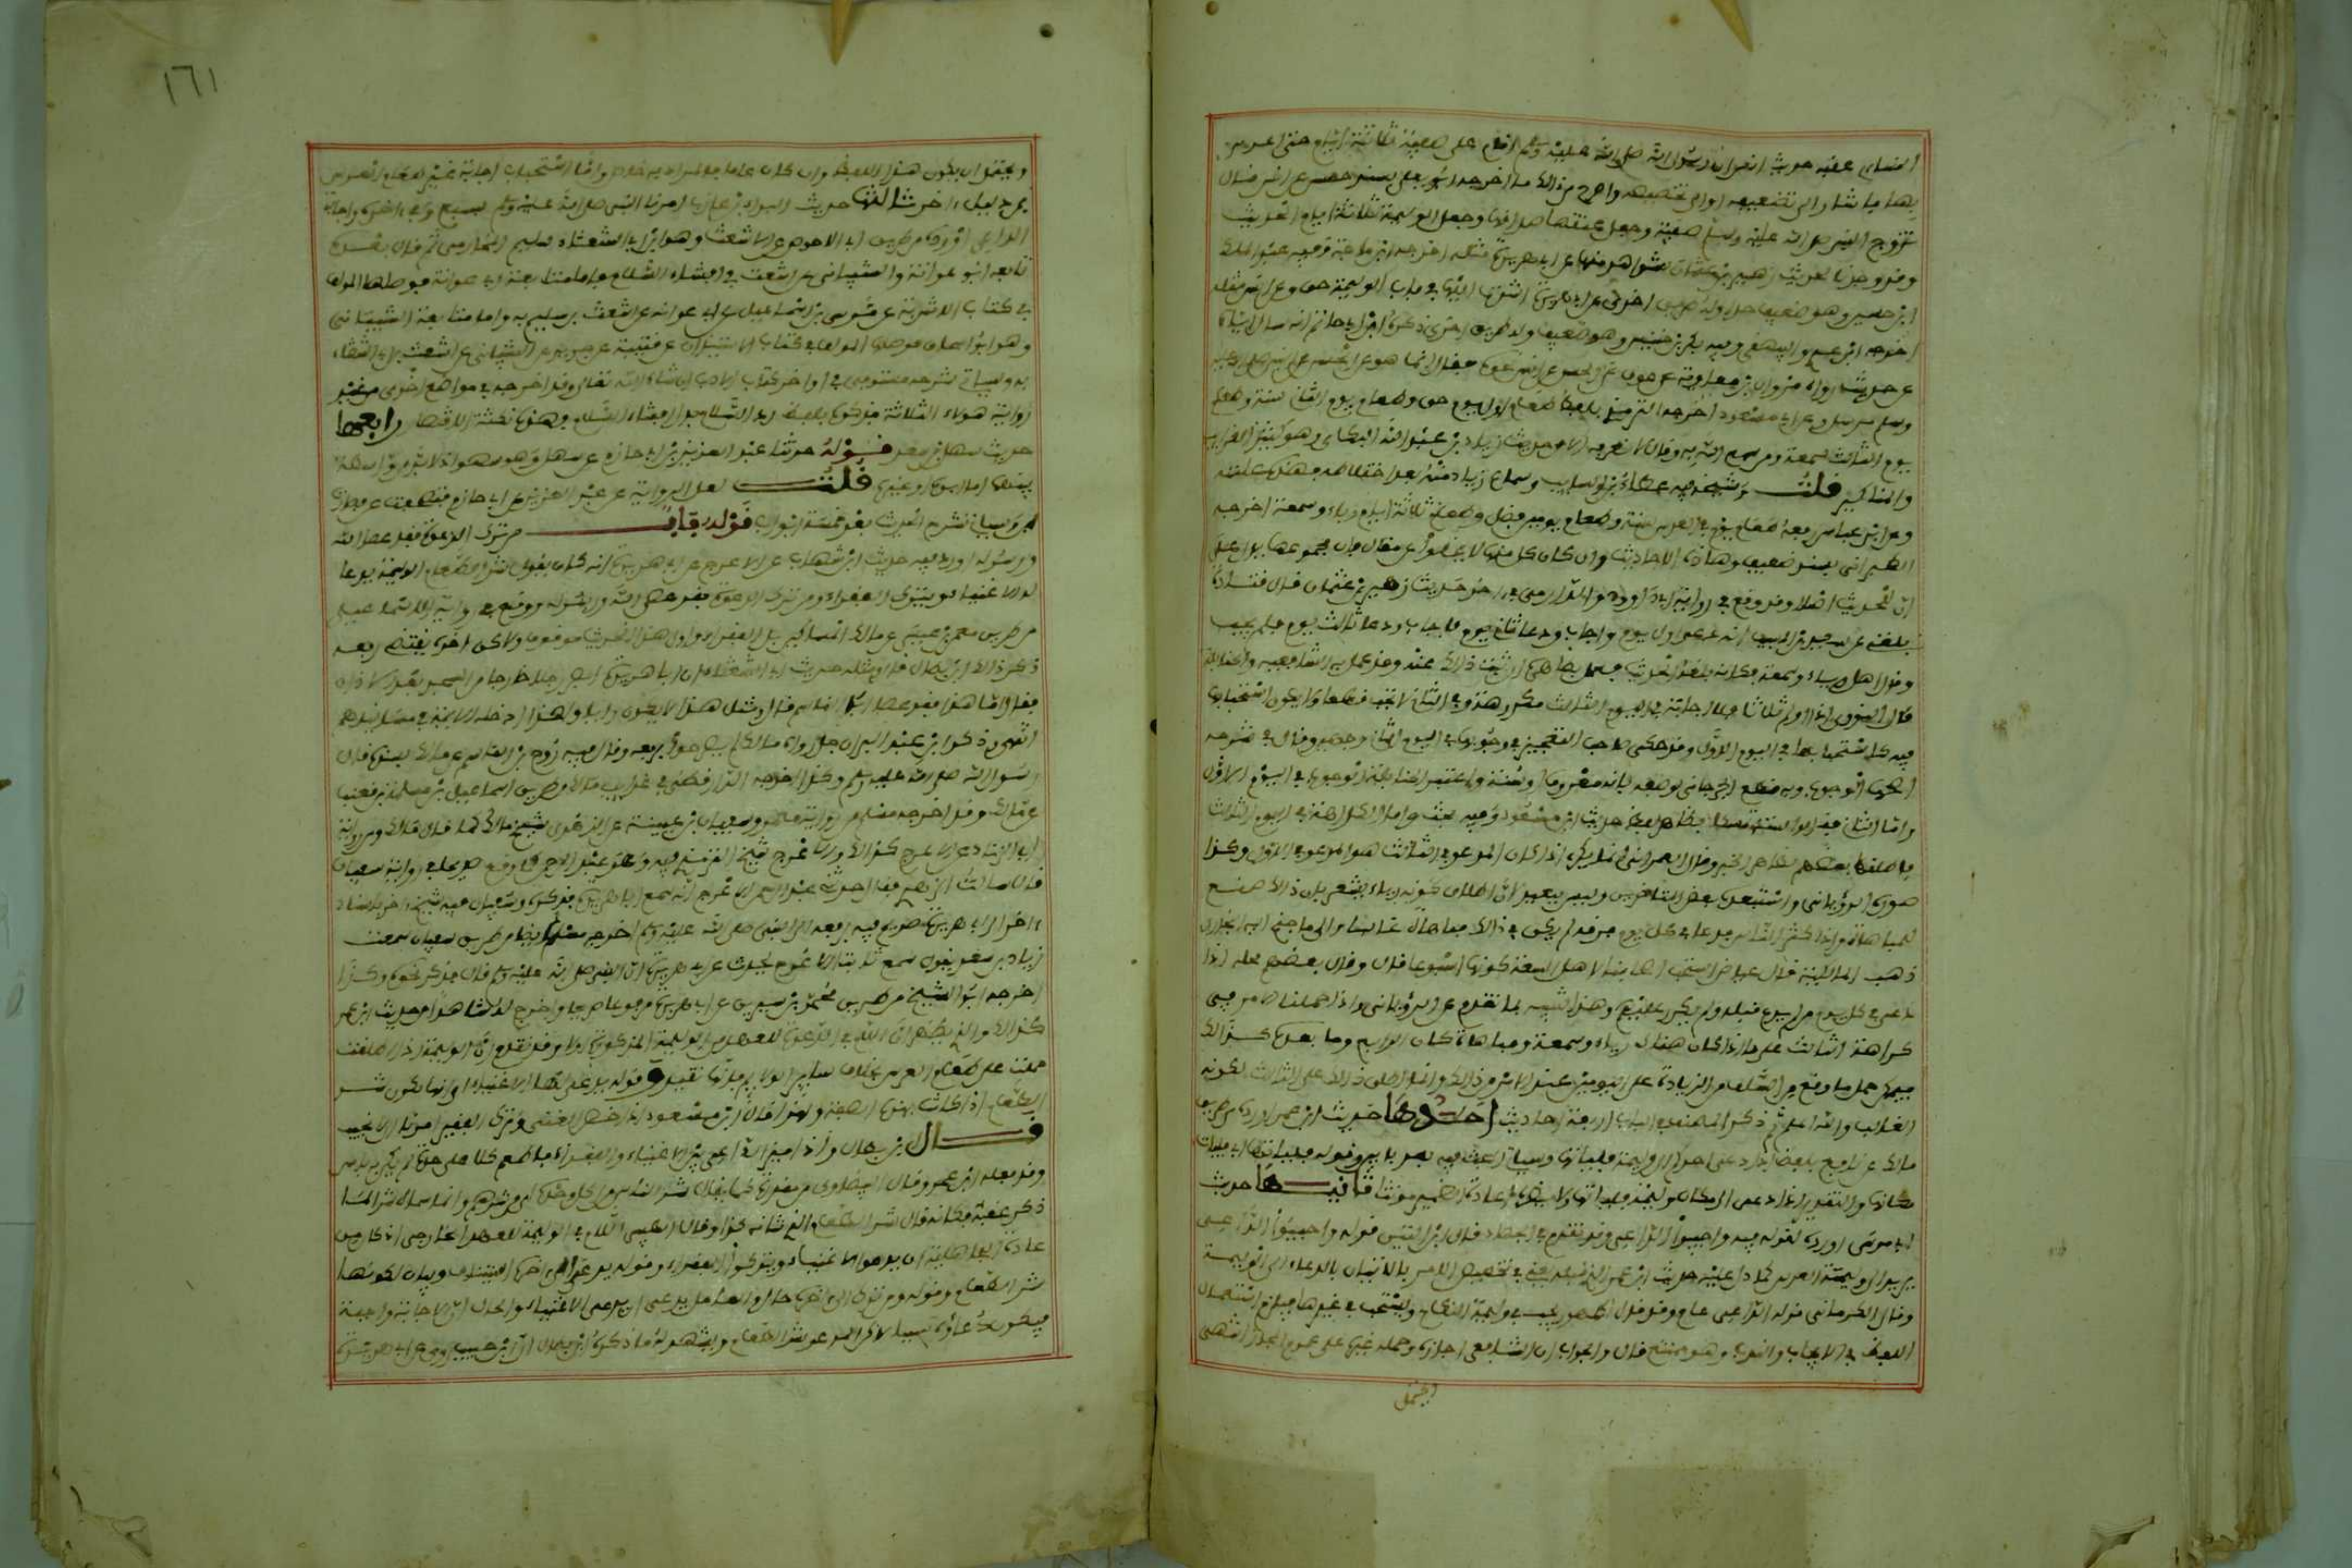 النسائي عقبه حديث انس ان رسول الله صلى الله عليه وسلم اقام على صفية ثلاثة ايام حتى اعرس
بها فاشار الى تضعيفه او الى تخصيصه واصرح من ذلك ما اخرجه ابو يعلى بسند حسن عن انس قال
تزوج النبي صلى الله عليه وسلم صفية وجعل عتقها صداقها وجعل الوليمة ثلاثة ايام الحديث
وقد وجدنا لحديث زهير بن عثمان شواهد منها عن ابي هريرة مثله اخرجه ابن ماجة وفيه عبد الملك
ابن حسين وهو ضعيف جدا وله طريق اخرى عن ابي هريرة اشرت اليها في باب الوليمة حق وعن انس مثله
اخرجه ابن عدي والبيهقي وفيه بكر بن خنيس وهو ضعيف وله طريق اخرى ذكر ابن ابي حاتم انه سال اباه
عن حديث رواه مروان بن معاوية عن عوف عن الحسن عن انس نحوه فقال انما هو عن الحسن عن النبي صلى الله عليه
وسلم مرسل وعن ابن مسعود اخرجه الترمذي بلفظ طعام اول يوم حق وطعام يوم الثاني سنة وطعام
يوم الثالث سمعة ومن سمع الله به وقال لا نعرفه الا من حديث زياد بن عبد الله البكائي وهو كثير الغرايب
والمناكير قلت وشيخه فيه عطاء بن السايب وسماع زياد منه بعد اختلاطه فهذه علته
وعن ابن عباس رفعه طعام يوم في العرس سنة وطعام يومين فضل وطعام ثلاثة ايام رياء وسمعة اخرجه
الطبراني بسند ضعيف وهذه الاحاديث وان كان كل منها لا يخلوا عن مقال فان مجموعها يدل على
ان للحديث اصلا وقد وقع في رواية ابي داوود والدارمي في اخر حديث زهير بن عثمان قال قتادة
بلغني عن سعيد بن المسيب انه دعي اول يوم واجاب ودعي ثاني يوم فاجاب ودعي ثالث يوم فلم يجب
وقال اهل رياء وسمعة فكانه بلغه الحديث فعمل بظاهره ان ثبت ذلك عنه وقد عمل به الشافعية والحنابلة
قال النووي اذا اولم ثلاثا فالاجابة في اليوم الثالث مكروهة وفي الثاني لا تجب قطعا ولا يكون استحبابها
فيه كاستحبابها في اليوم الاول وقد حكى صاحب التعجيز في وجوبها في اليوم الثاني وجهين وقال في شرحه
اصحهما الوجوب وبه قطع الجرجاني لوصفه بانه معروف او سنة واعتبر الحنابلة الوجوب في اليوم الاول
واما الثاني فقالوا سنة تمسكا بظاهر لفظ حديث ابن مسعود وفيه بحث واما الكراهة في اليوم الثالث
فاطلقها بعضهم لظاهر الخبر وقال العمراني انما تكره اذا كان المدعو في الثالث هو المدعو في الاول وكذا
صوره الروياني واستبعده بعض المتاخرين وليس ببعيد لان اطلاق كونه رياء يشعر بان ذلك صنع
للمباهاة واذا كثر الناس فدعا في كل يوم فرقة لم يكن في ذلك مباهاة غالبا والى ما جنح اليه البخاري
ذهب المالكية قال عياض استحب اصحابنا لاهل السعة كونها اسبوعا قال وقال بعضهم محله اذا
دعي في كل يوم من لم يدع قبله ولم يكرر عليهم وهذا شبيه بما تقدم عن الروياني واذا حملنا الامر في
كراهة الثالث على ما اذا كان هناك رياء وسمعة ومباهاة كان الرابع وما بعده كذلك
فيمكن حمل ما وقع من السلف من الزيادة على اليومين عند الامن من ذلك وانما اطلق ذلك على الثالث لكونه
الغالب والله اعلم ثم ذكر المصنف في الباب اربعة احاديث احدها حديث ابن عمر اورده من طريق
مالك عن نافع بلفظ اذا دعي احدكم الى الوليمة فلياتها وسياتي البحث فيه بعد بابين وقوله فلياتها اي فليات
مكانها والتقدير اذا دعي الى مكان وليمة فلياتها ولا يضر اعادة الضمير مؤنثا ثانيها حديث
ابي موسى اورده لقوله فيه واجيبوا الداعي وقد تقدم في الجهاد قال ابن التين قوله واجيبوا الداعي
يريد الى وليمة العرس كما دل عليه حديث ابن عمر الذي قبله يعني في تخصيص الامر بالاتيان بالدعاء الى الوليمة
وقال الكرماني قوله الداعي عام وقد قال الجمهور تجب في وليمة النكاح وتستحب في غيرها فيلزم استعمال
اللفظ في الايجاب والندب وهو ممتنع قال والجواب ان الشافعي اجازه وحمله غيره على عموم المجاز انتهى
ويحتمل
١٦١
ويحتمل ان يكون هذا اللفظ وان كان عاما فالمراد به خاص واما استحباب اجابة غير طعام العرس
فمن دليل اخر ثالثها حديث البراء بن عازب امرنا النبي صلى الله عليه وسلم بسبع وفي اخره واجابة
الداعي اورده من طريق ابي الاحوص عن الاشعث وهو ابن ابي الشعثاء سليم المحاربي ثم قال بعده
تابعه ابو عوانة والشيباني عن اشعث في افشاء السلام فاما متابعة ابي عوانة فوصلها المؤلف
في كتاب الاشربة عن موسى بن اسماعيل عن ابي عوانة عن اشعث بن سليم به واما متابعة الشيباني
وهو ابو اسحاق فوصلها المؤلف في كتاب الاستيذان عن قتيبة عن جرير عن الشيباني عن اشعث بن ابي الشعثاء
به وسياتي شرحه مستوفى في اواخر كتاب الادب ان شاء الله تعالى وقد اخرجه في مواضع اخرى من غير
رواية هولاء الثلاثة فذكره بلفظ رد السلام بدل افشاء السلام فهذه نكتة الاقتصار رابعها
حديث سهل بن سعد قوله حدثنا عبد العزيز بن ابي حازم عن سهل وهو سهو اذ لا بد من واسطة
بينهما اما ابوه او غيره قلت لعل الرواية عن عبد العزيز عن ابي حازم فتصحفت عن فصارت
ابن وسياتي شرح الحديث بعد خمسة ابواب قوله باب من ترك الدعوة فقد عصى الله
ورسوله اورد فيه حديث ابن شهاب عن الاعرج عن ابي هريرة انه كان يقول شر الطعام طعام الوليمة يدعا
لها الاغنياء ويترك الفقراء ومن ترك الدعوة فقد عصى الله ورسوله ووقع في رواية للاسماعيلي
من طريق معن بن عيسى عن مالك المساكين بدل الفقراء واول هذا الحديث موقوف ولاكن اخره يقتضي رفعه
ذكر ذلك ابن بطال قال ومثله حديث ابي الشعثاء ان ابا هريرة ابصر رجلا خارجا من المسجد بعد الاذان
فقال اما هذا فقد عصى ابا القاسم قال ومثل هذا لا يكون رايا ولهذا ادخله الايمة في مسانيدهم
انتهى وذكر ابن عبد البر ان جل رواة مالك لم يصرحوا برفعه وقال فيه روح بن القاسم عن مالك بسنده قال
رسول الله صلى الله عليه وسلم وكذا اخرجه الدارقطني في غرايب مالك من طريق اسماعيل بن مسلمة بن قعنب
عن مالك وقد اخرجه مسلم من رواية معمر وسفيان بن عيينة عن الزهري شيخ مالك كما قال مالك ومن رواية
ابي الزناد عن الاعرج كذلك والاعرج شيخ الزهري فيه وهو عبد الرحمن كما وقع صريحا في رواية سفيان
قال سالت الزهري فقال حدثني عبد الرحمن الاعرج انه سمع ابا هريرة فذكره ولسفيان فيه شيخ اخر باسناد
اخر الى ابي هريرة صرح فيه برفعه الى النبي صلى الله عليه وسلم اخرجه مسلم ايضا من طريق سفيان سمعت
زياد بن سعد يقول سمعت ثابتا الاعرج يحدث عن ابي هريرة ان النبي صلى الله عليه وسلم قال فذكر نحوه وكذا
اخرجه ابو الشيخ من طريق محمد بن سيرين عن ابي هريرة مرفوعا صريحا واخرج له شاهدا من حديث ابن عمر
كذلك والذي يظهر ان اللام في الدعوة للعهد من الوليمة المذكورة اولا وقد تقدم ان الوليمة اذا اطلقت
حملت على طعام العرس بخلاف ساير الولايم فانها تقيد وقوله يدعى لها الاغنياء اي انها تكون شر
الطعام اذا كانت بهذه الصفة ولهذا قال ابن مسعود اذا خص الغني وترك الفقير امرنا الا نجيب
قال ابن بطال واذا ميز الداعي بين الاغنياء والفقراء فاطعم كلا على حدة لم يكن به باس
وقد فعله ابن عمر وقال البيضاوي من مقدرة كما يقال شر الناس من اكل وحده اي من شرهم وانما سماه شرا لما
ذكر عقبه فكانه قال شر الطعام الذي شانه كذا وقال الطيبي اللام في الوليمة للعهد الخارجي اذ كان من
عادة الجاهلية ان يدعوا الاغنياء ويتركوا الفقراء وقوله يدعى الى اخره استيناف وبيان لكونها
شر الطعام وقوله ومن ترك الى اخره حال والعامل يدعى اي يدعى الاغنياء والحال ان الاجابة واجبة
فيكون دعاؤه سببا لاكل المدعو شر الطعام ويشهد له ما ذكره ابن بطال ان ابن حبيب روى عن ابي هريرة